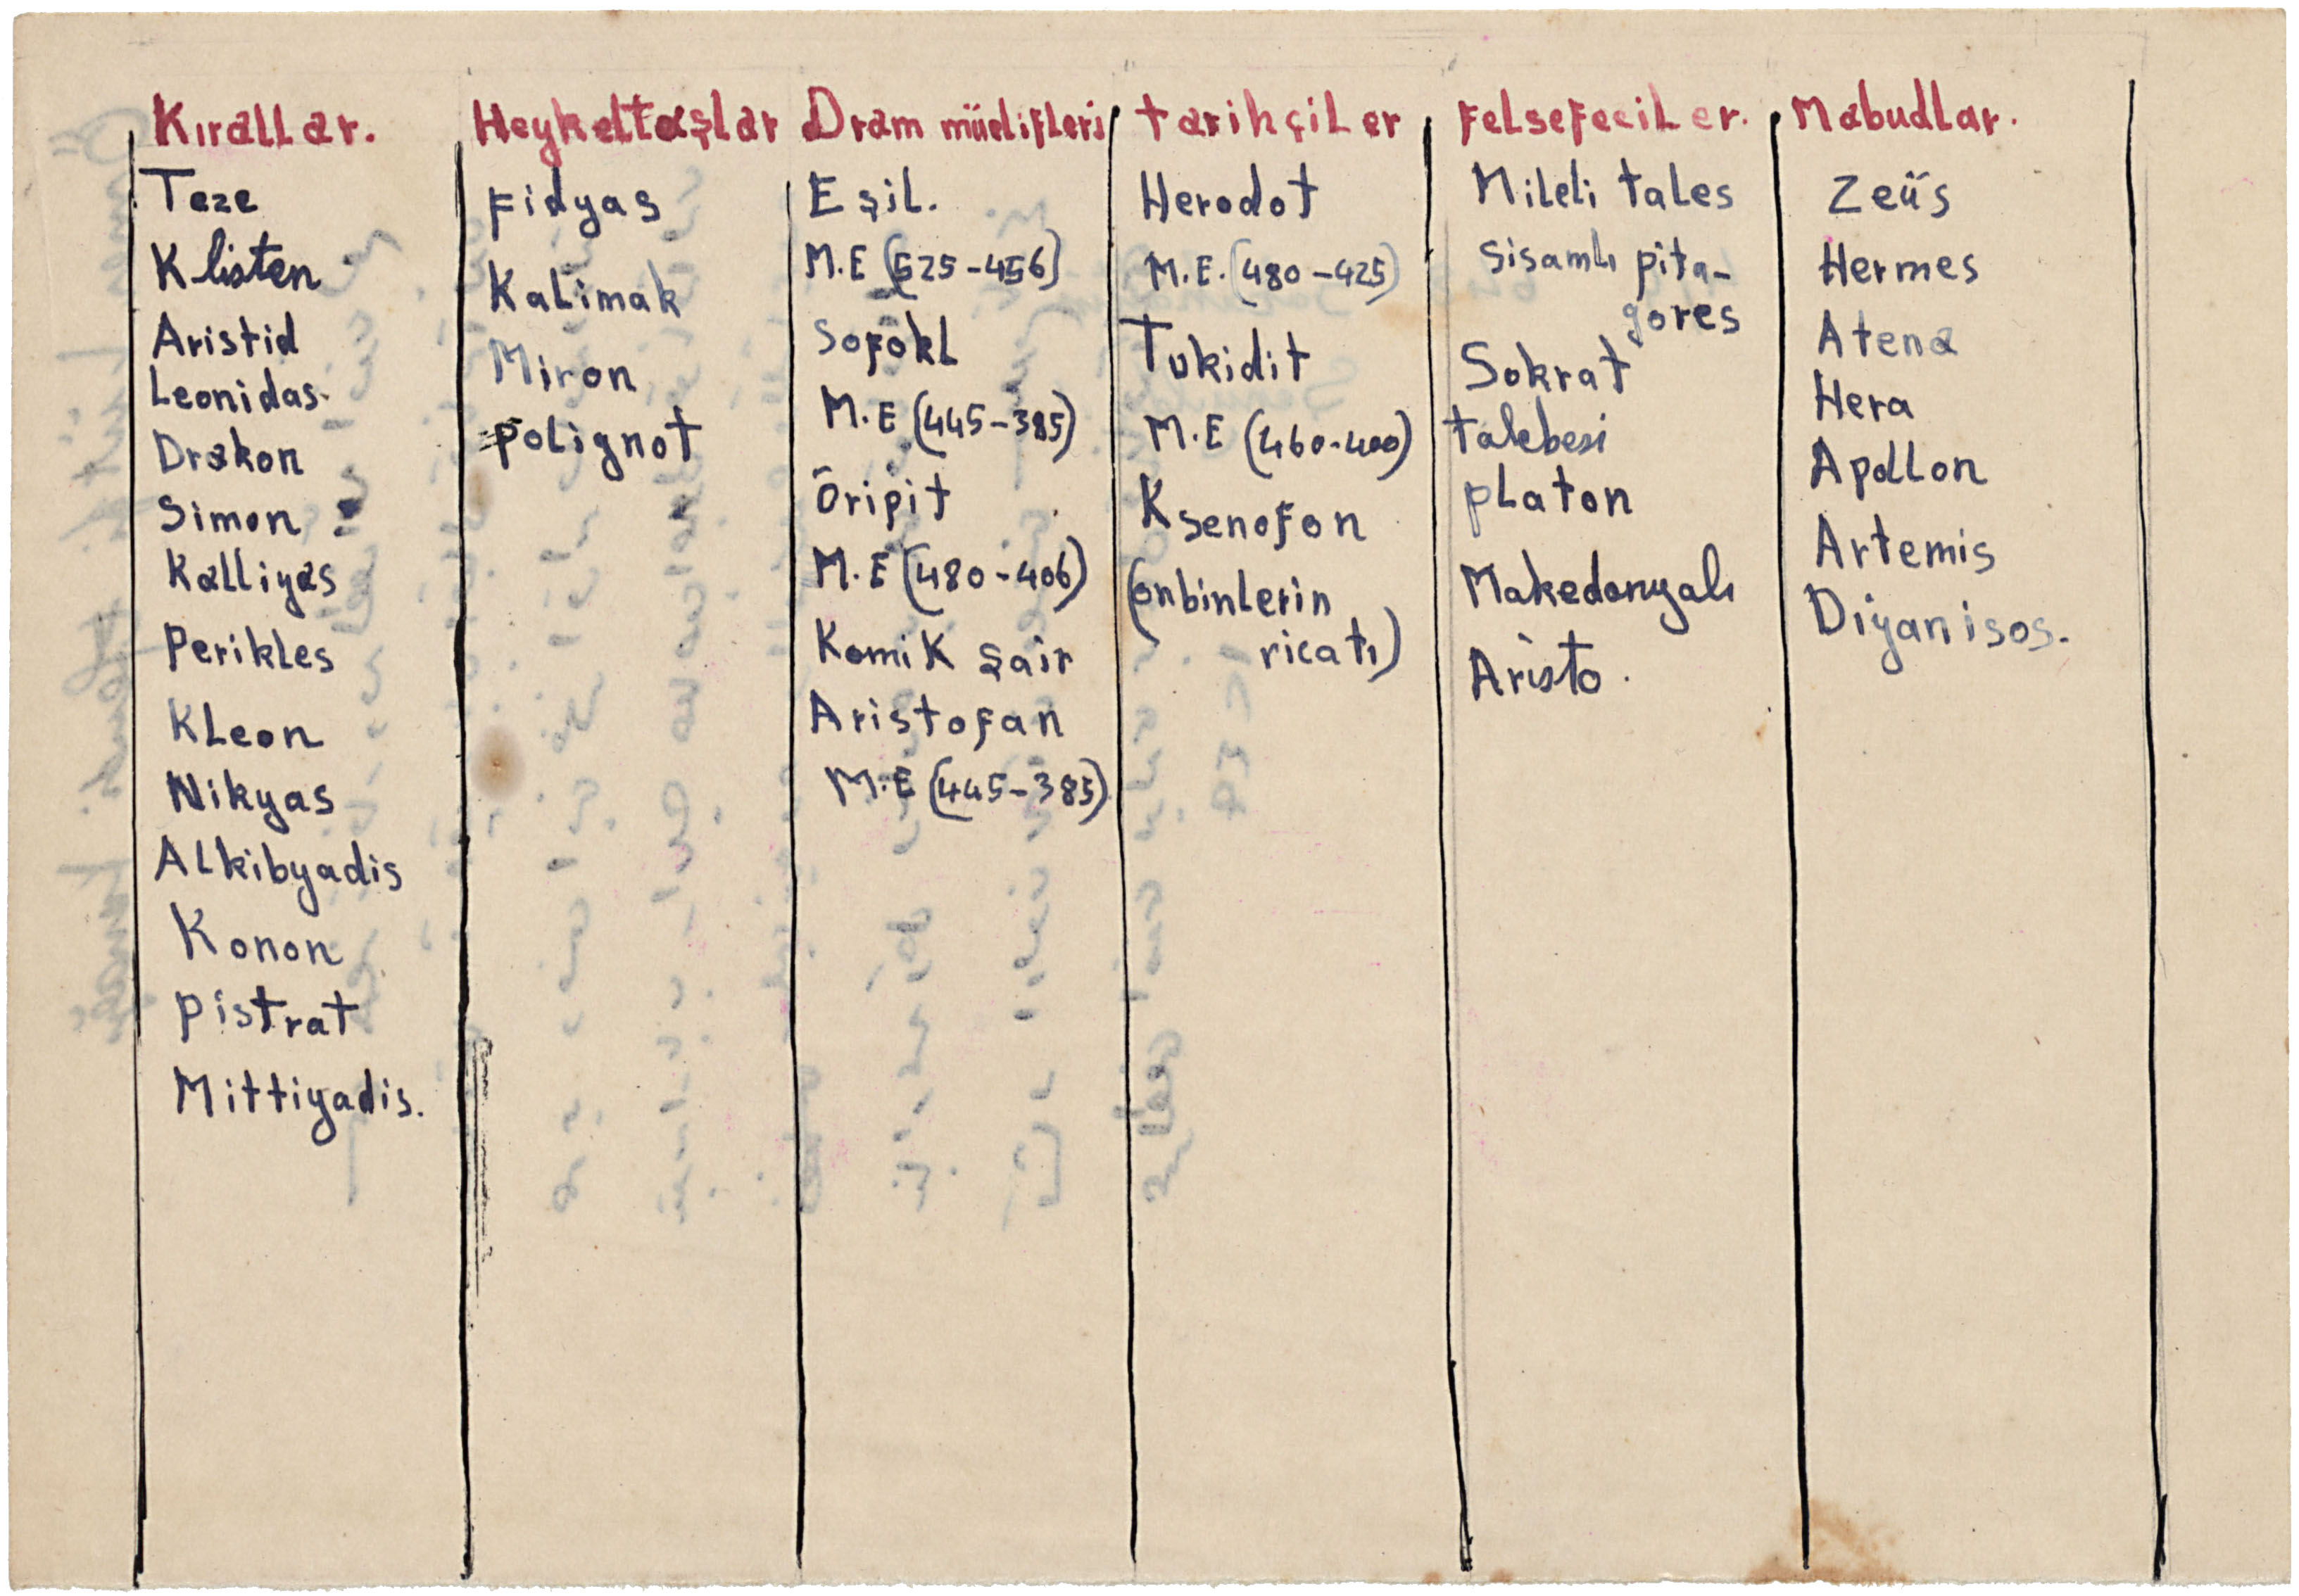 Kırallar.
Teze
Klisten
Aristid
Leonidas.
Drakon
Simon
Kalliyas
Perikles
Kleon
Nikyas
Alkibyadis
Konon
Pistrat
Mittiyadis.
Heykeltaşlar
Fidyas
Kalimak
Miron
Polignot
Dram müelifleri
Eşil.
M.E (525-456)
Sofokl
M.E (445-385)
Öripit
M.E (480-406)
Komik şair
Aristofan
M.E (445-385)
tarihçiler
Herodot
M.E. (480-425)
Tukidit
M.E (460-400)
Ksenofon
(onbinlerin
ricatı)
Felsefeciler.
Mileli tales
Sisamlı pita-
gores
Sokrat
talebesi
platon
Makedonyalı
Aristo.
Mabudlar.
Zeüs
Hermes
Atena
Hera
Apollon
Artemis
Diyanisos.